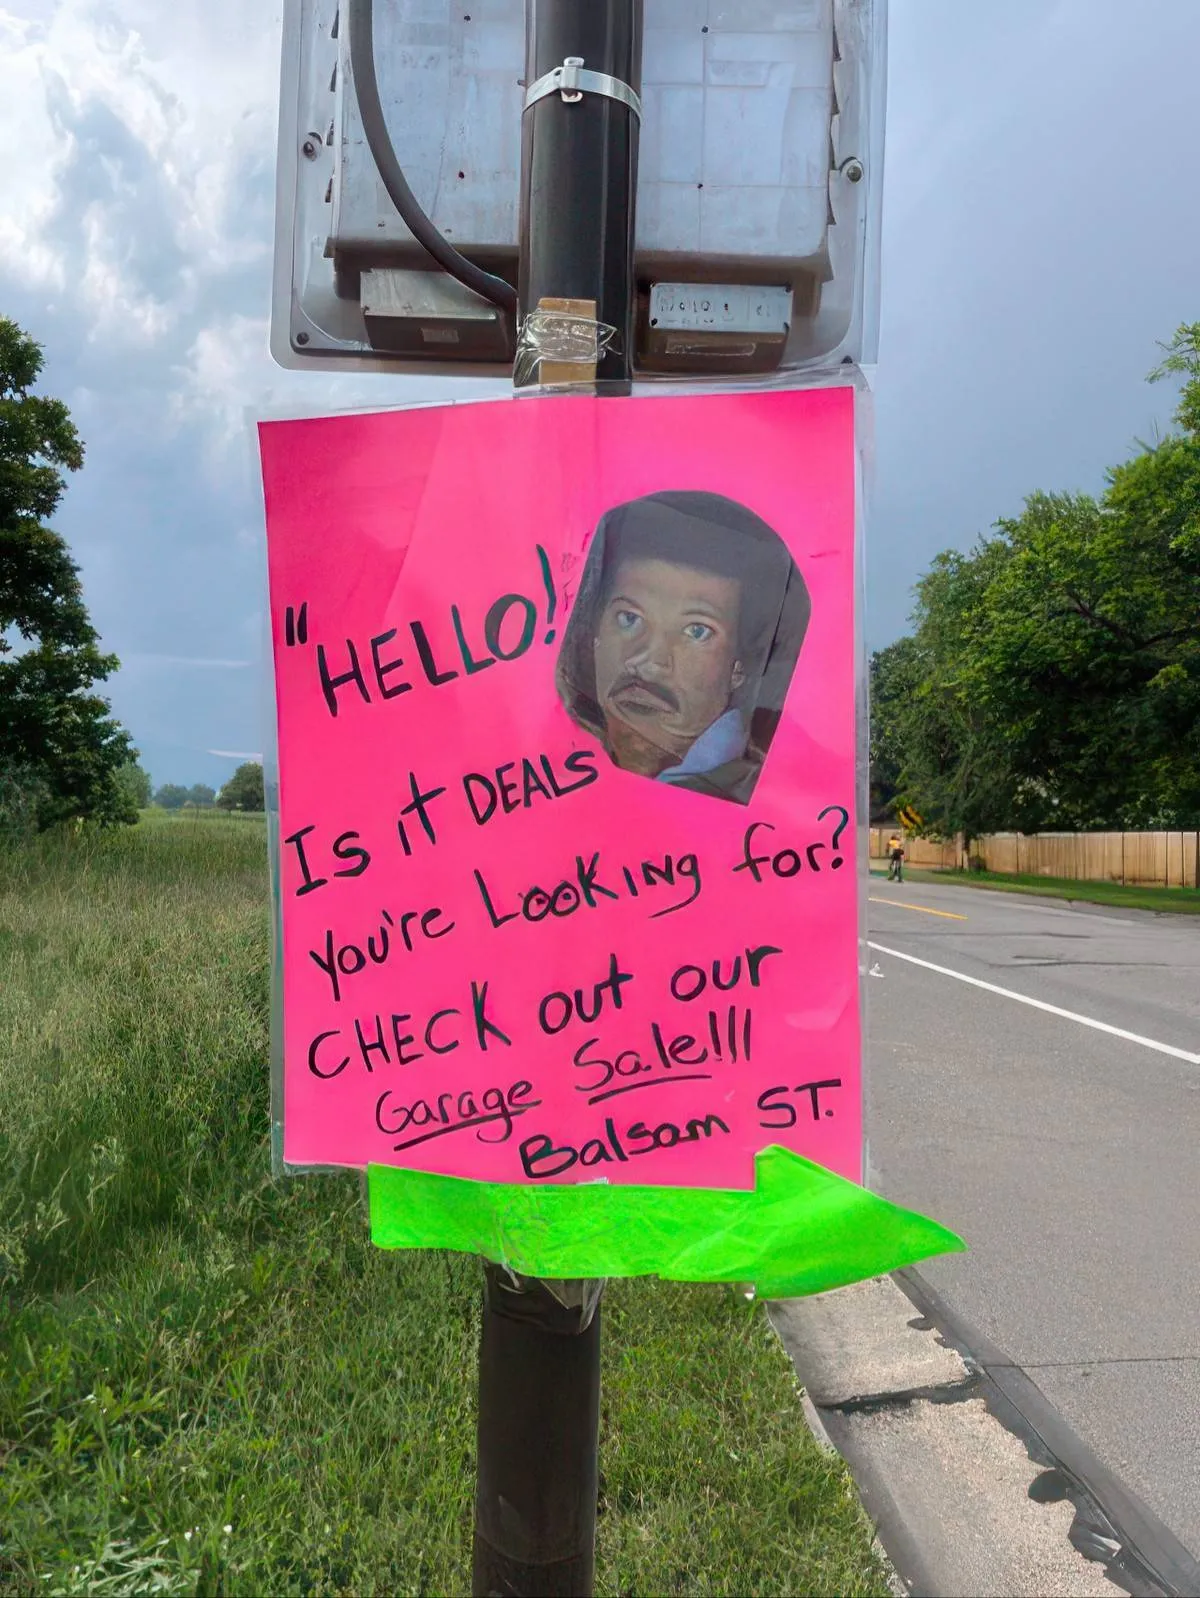 "HELLO!
Is it DEALS
You're Looking for?
CHECK out our
Garage Sale!!!
Balsam ST.